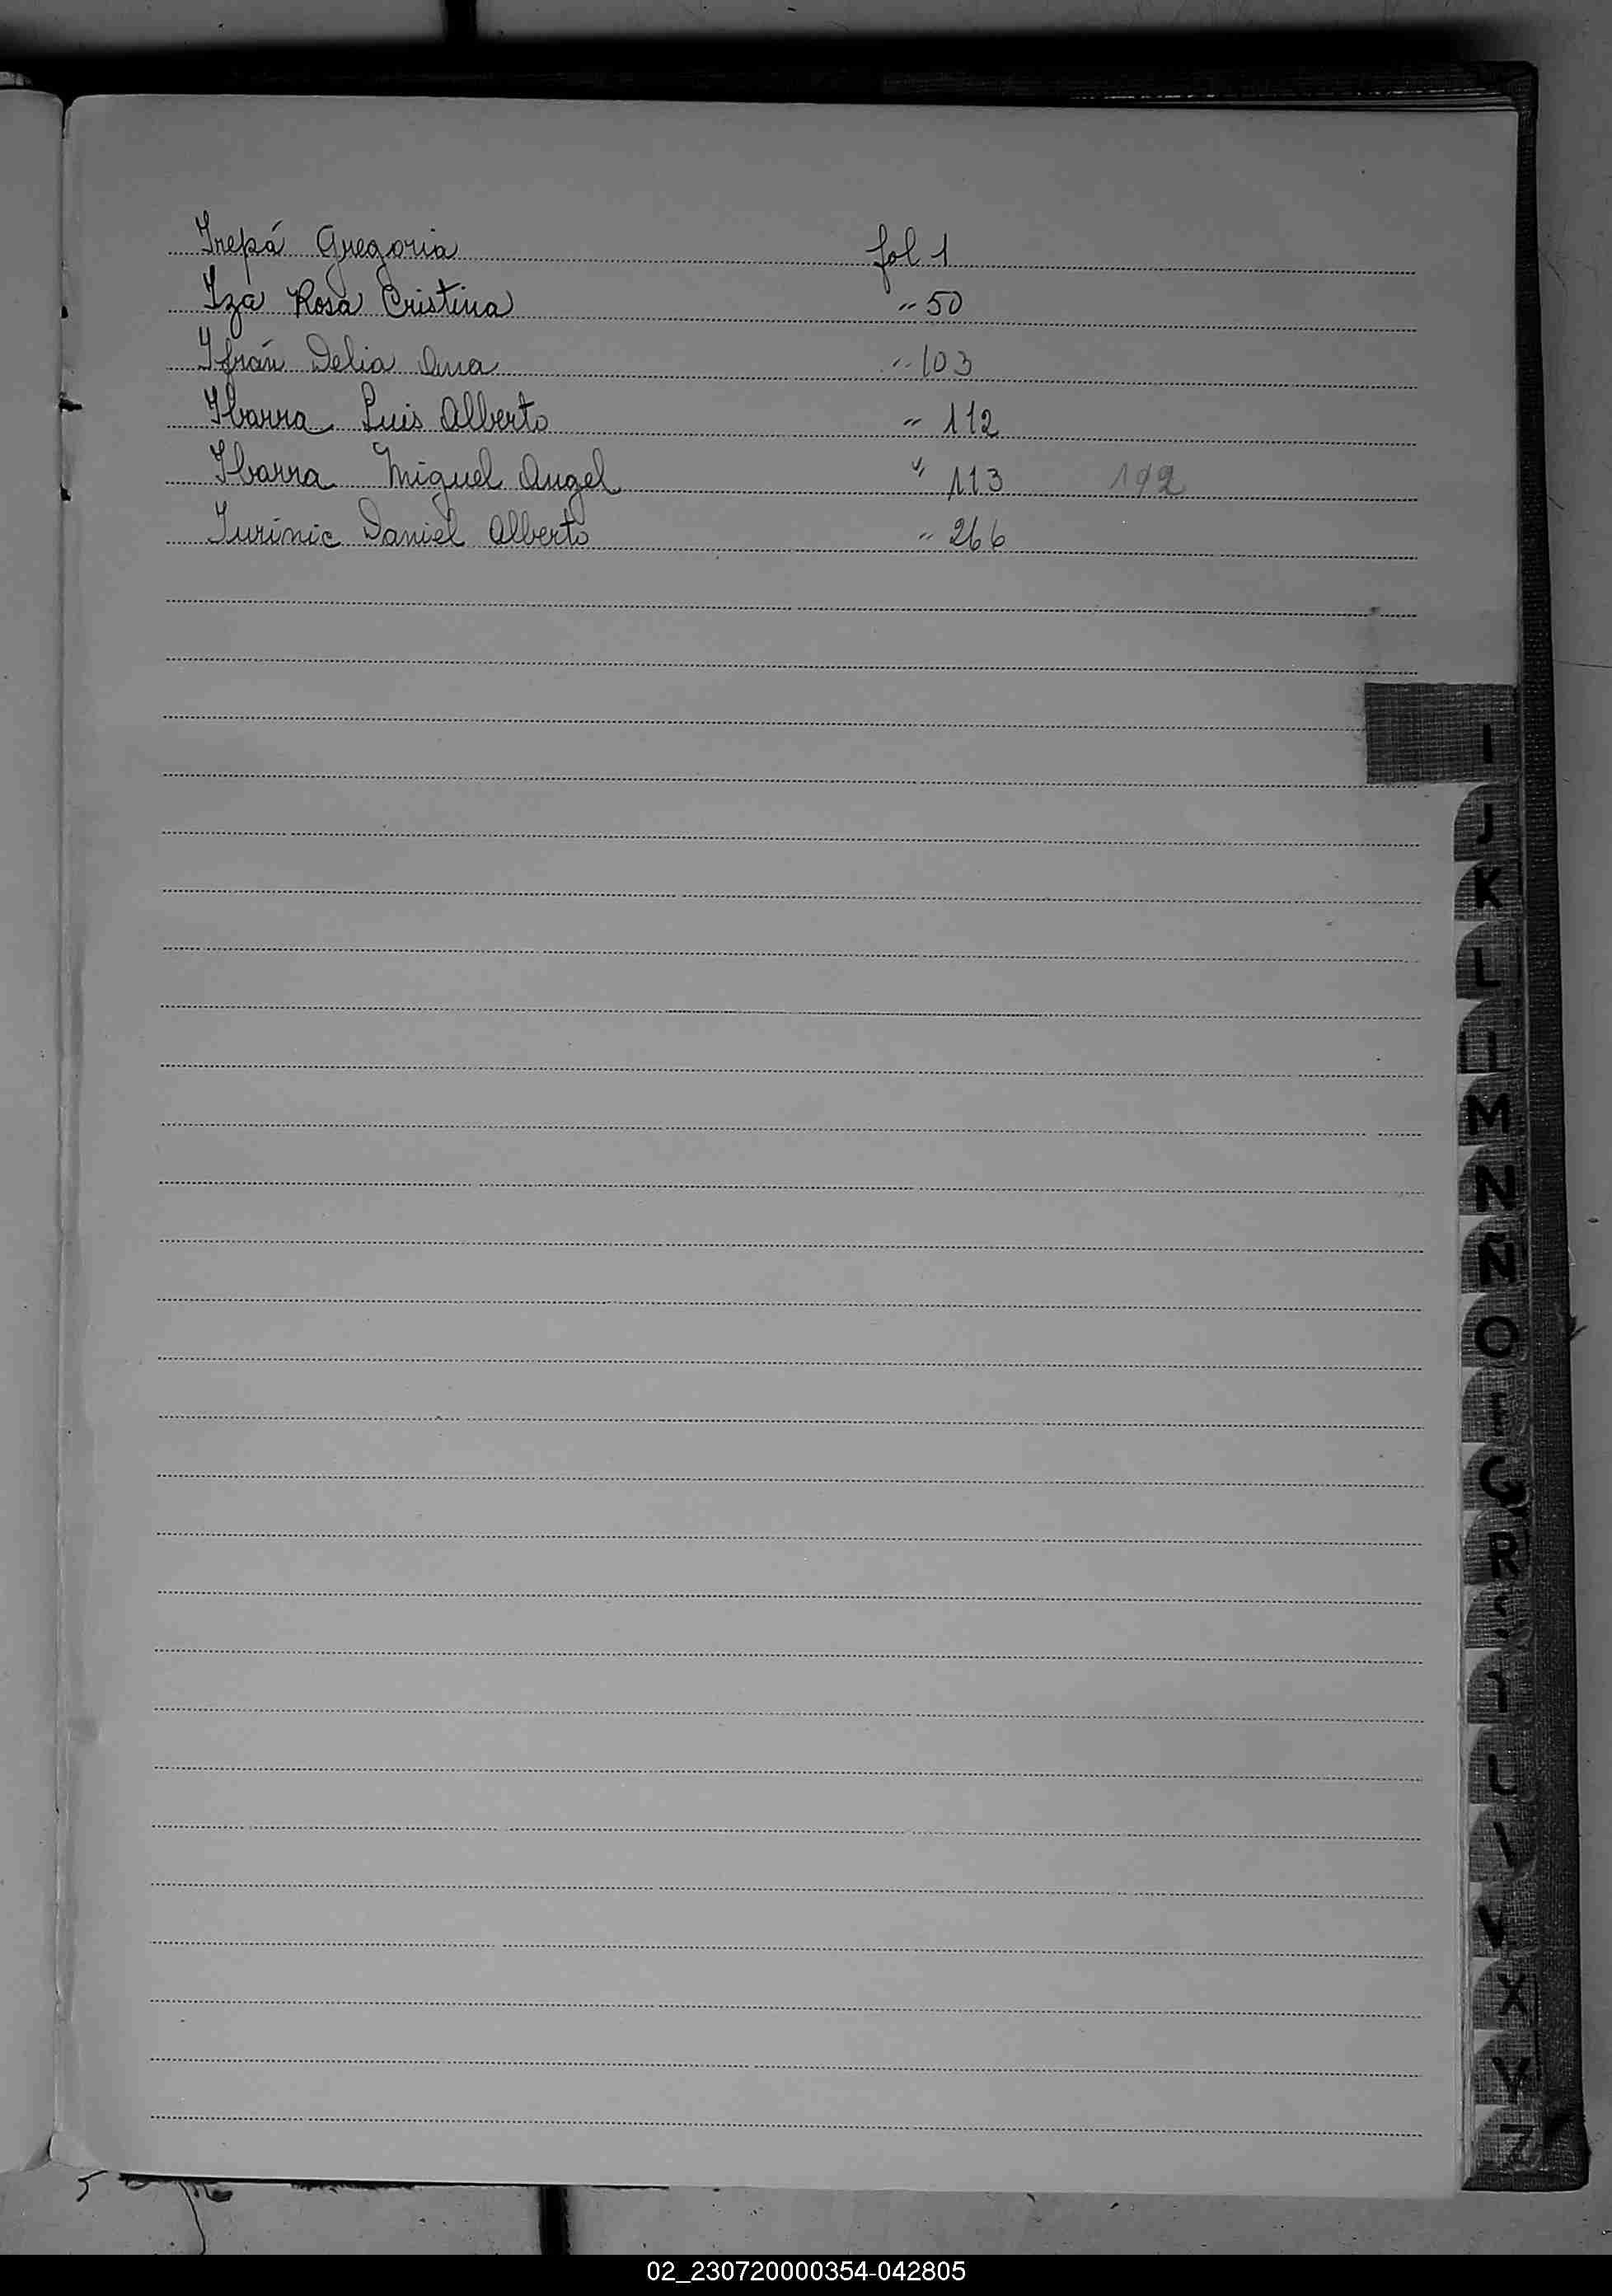 Irepá Gregoria fol 1
Iza Rosa Cristina " 50
Ifrán Delia Ana " 103
Ibarra Luis Alberto " 112
Ibarra Miguel Angel " 113 192
Iurinic Daniel Alberto " 266
I
J
K
L
M
N
Ñ
O
R
V
X
Y
Z
02_230720000354-042805